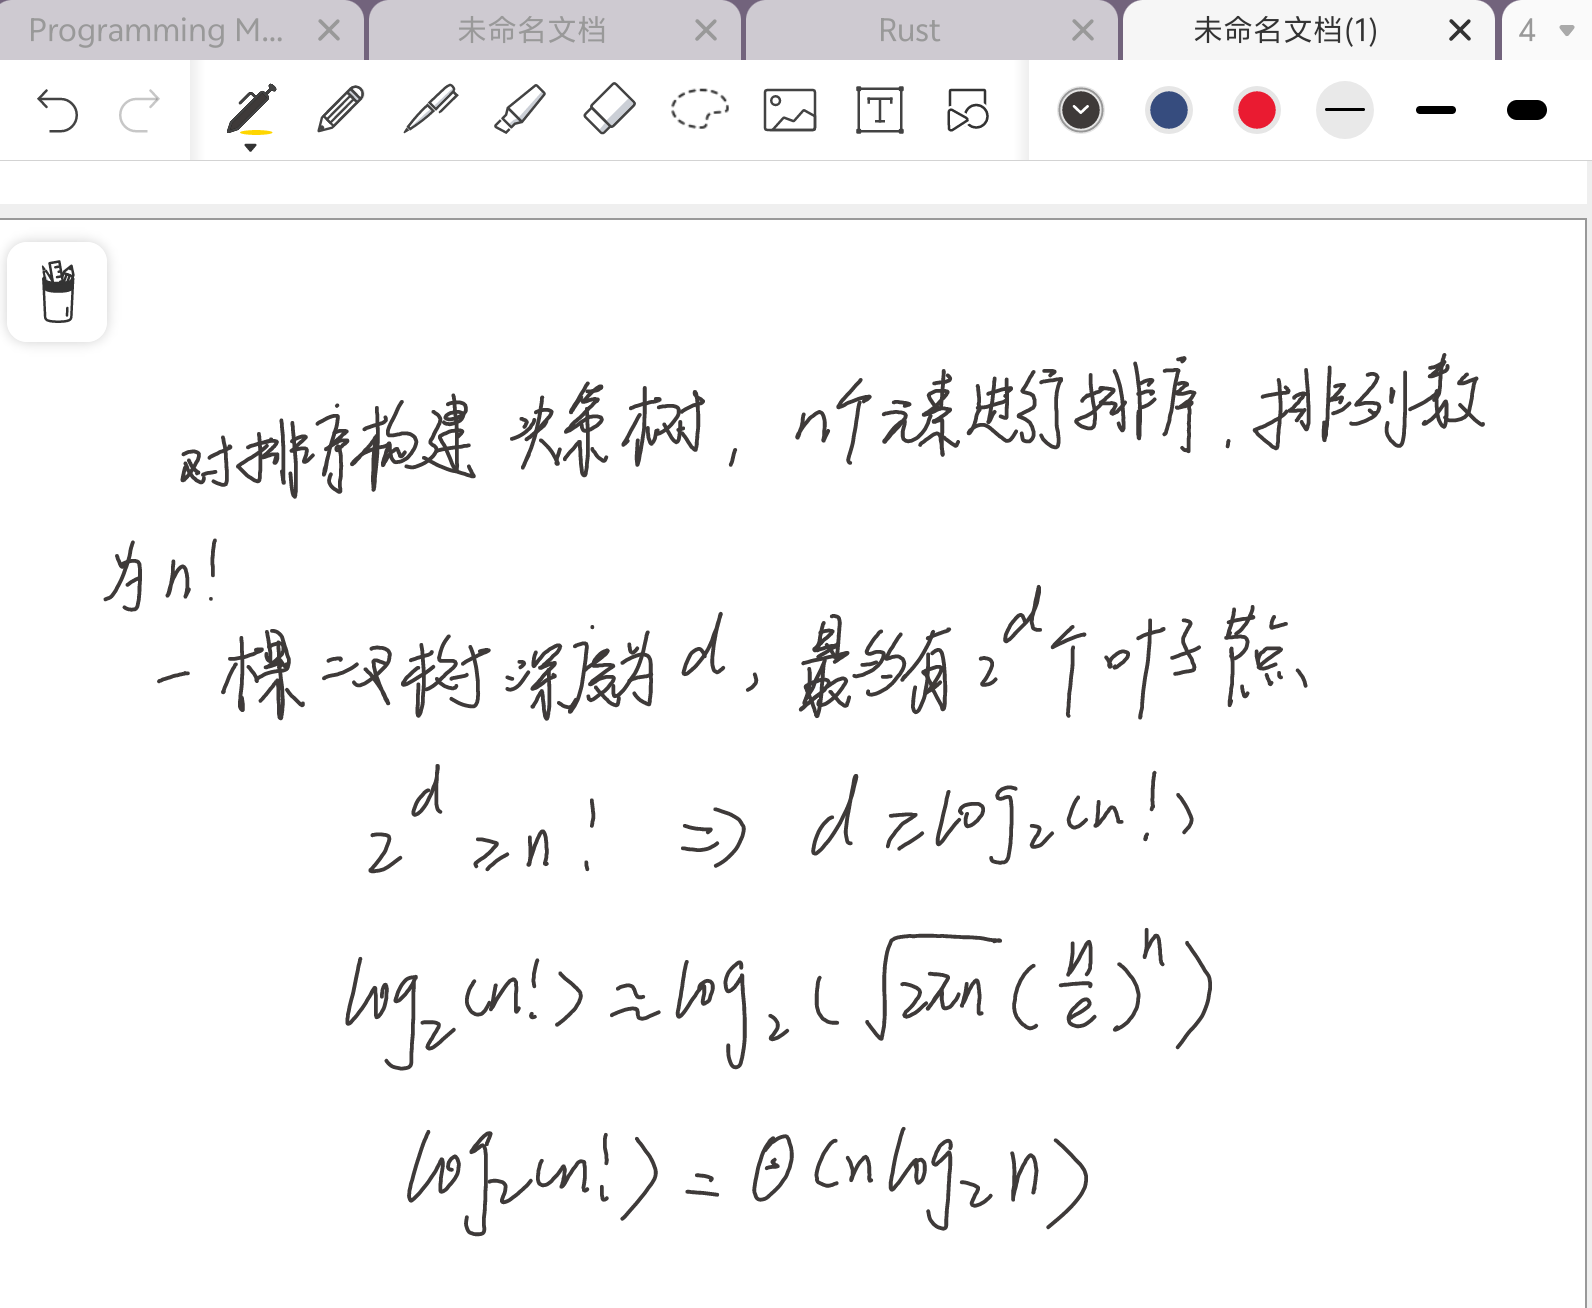 Programming M... 未命名文档 Rust 未命名文档(1) 4
T
对排序构建 决策树, n个元素进行排序. 排列数
为n!
一棵二叉树深度为d, 最多有2^d个叶子节点、
2^d ≥ n! ⇒ d ≥ log₂(n!)
log₂(n!) ≈ log₂(√(2πn) (n/e)^n)
log₂(n!) = Θ(n log₂ n)